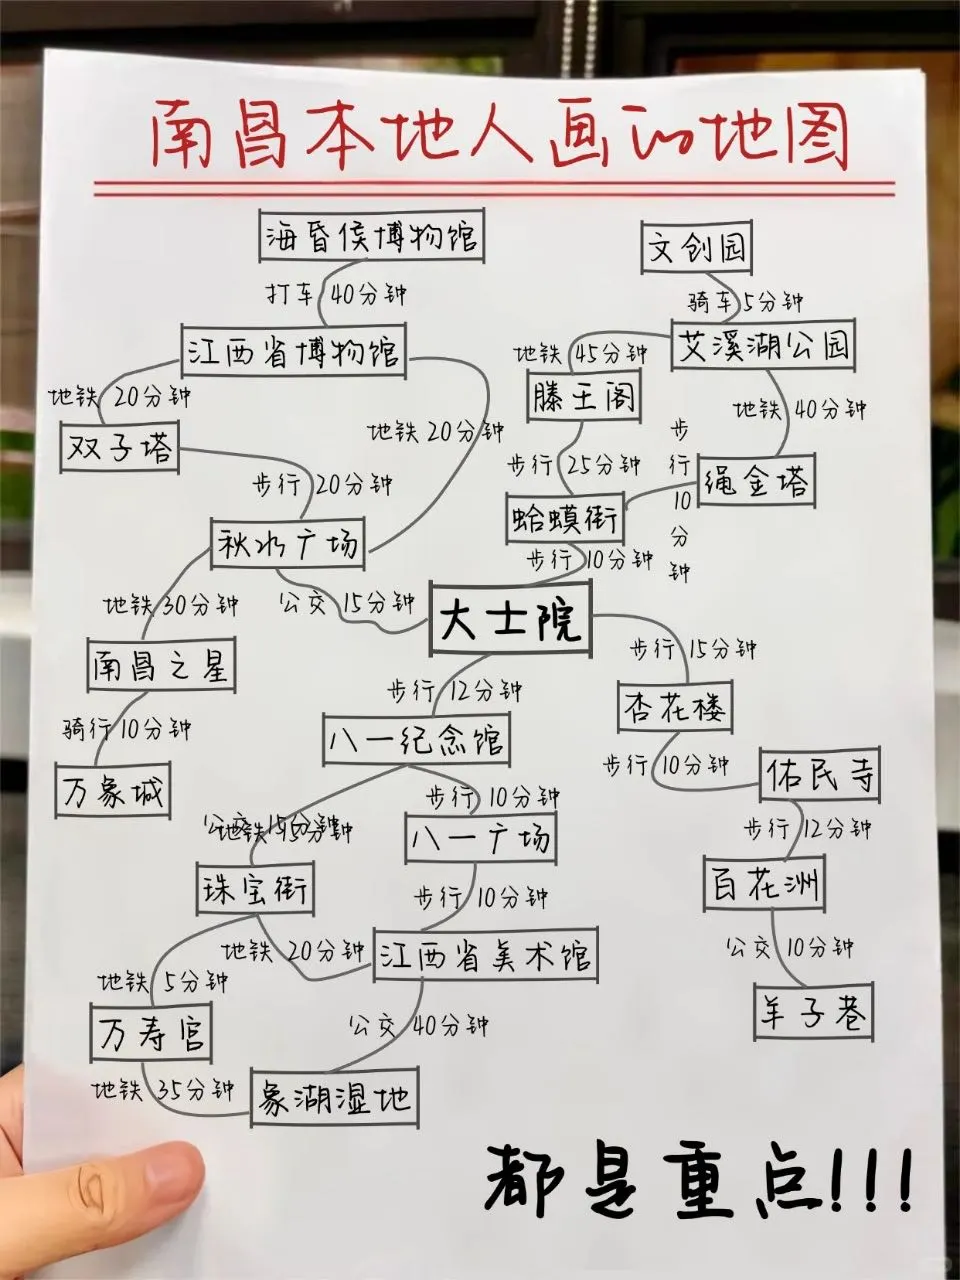 南昌本地人画的地图
海昏侯博物馆
文创园
打车 40分钟
骑车 5分钟
江西省博物馆
艾溪湖公园
地铁 45分钟
地铁 20分钟
滕王阁
地铁 40分钟
双子塔
地铁 20分钟
步行 10分钟
步行 25分钟
绳金塔
步行 20分钟
蛤蟆街
秋水广场
步行 10分钟
地铁 30分钟
公交 15分钟
大士院
步行 15分钟
南昌之星
步行 12分钟
杏花楼
骑行 10分钟
八一纪念馆
步行 10分钟
佑民寺
万象城
步行 10分钟
步行 12分钟
八一广场
珠宝街
百花洲
步行 10分钟
地铁 20分钟
江西省美术馆
公交 10分钟
地铁 5分钟
万寿宫
公交 40分钟
羊子巷
地铁 35分钟
象湖湿地
都是重点!!!